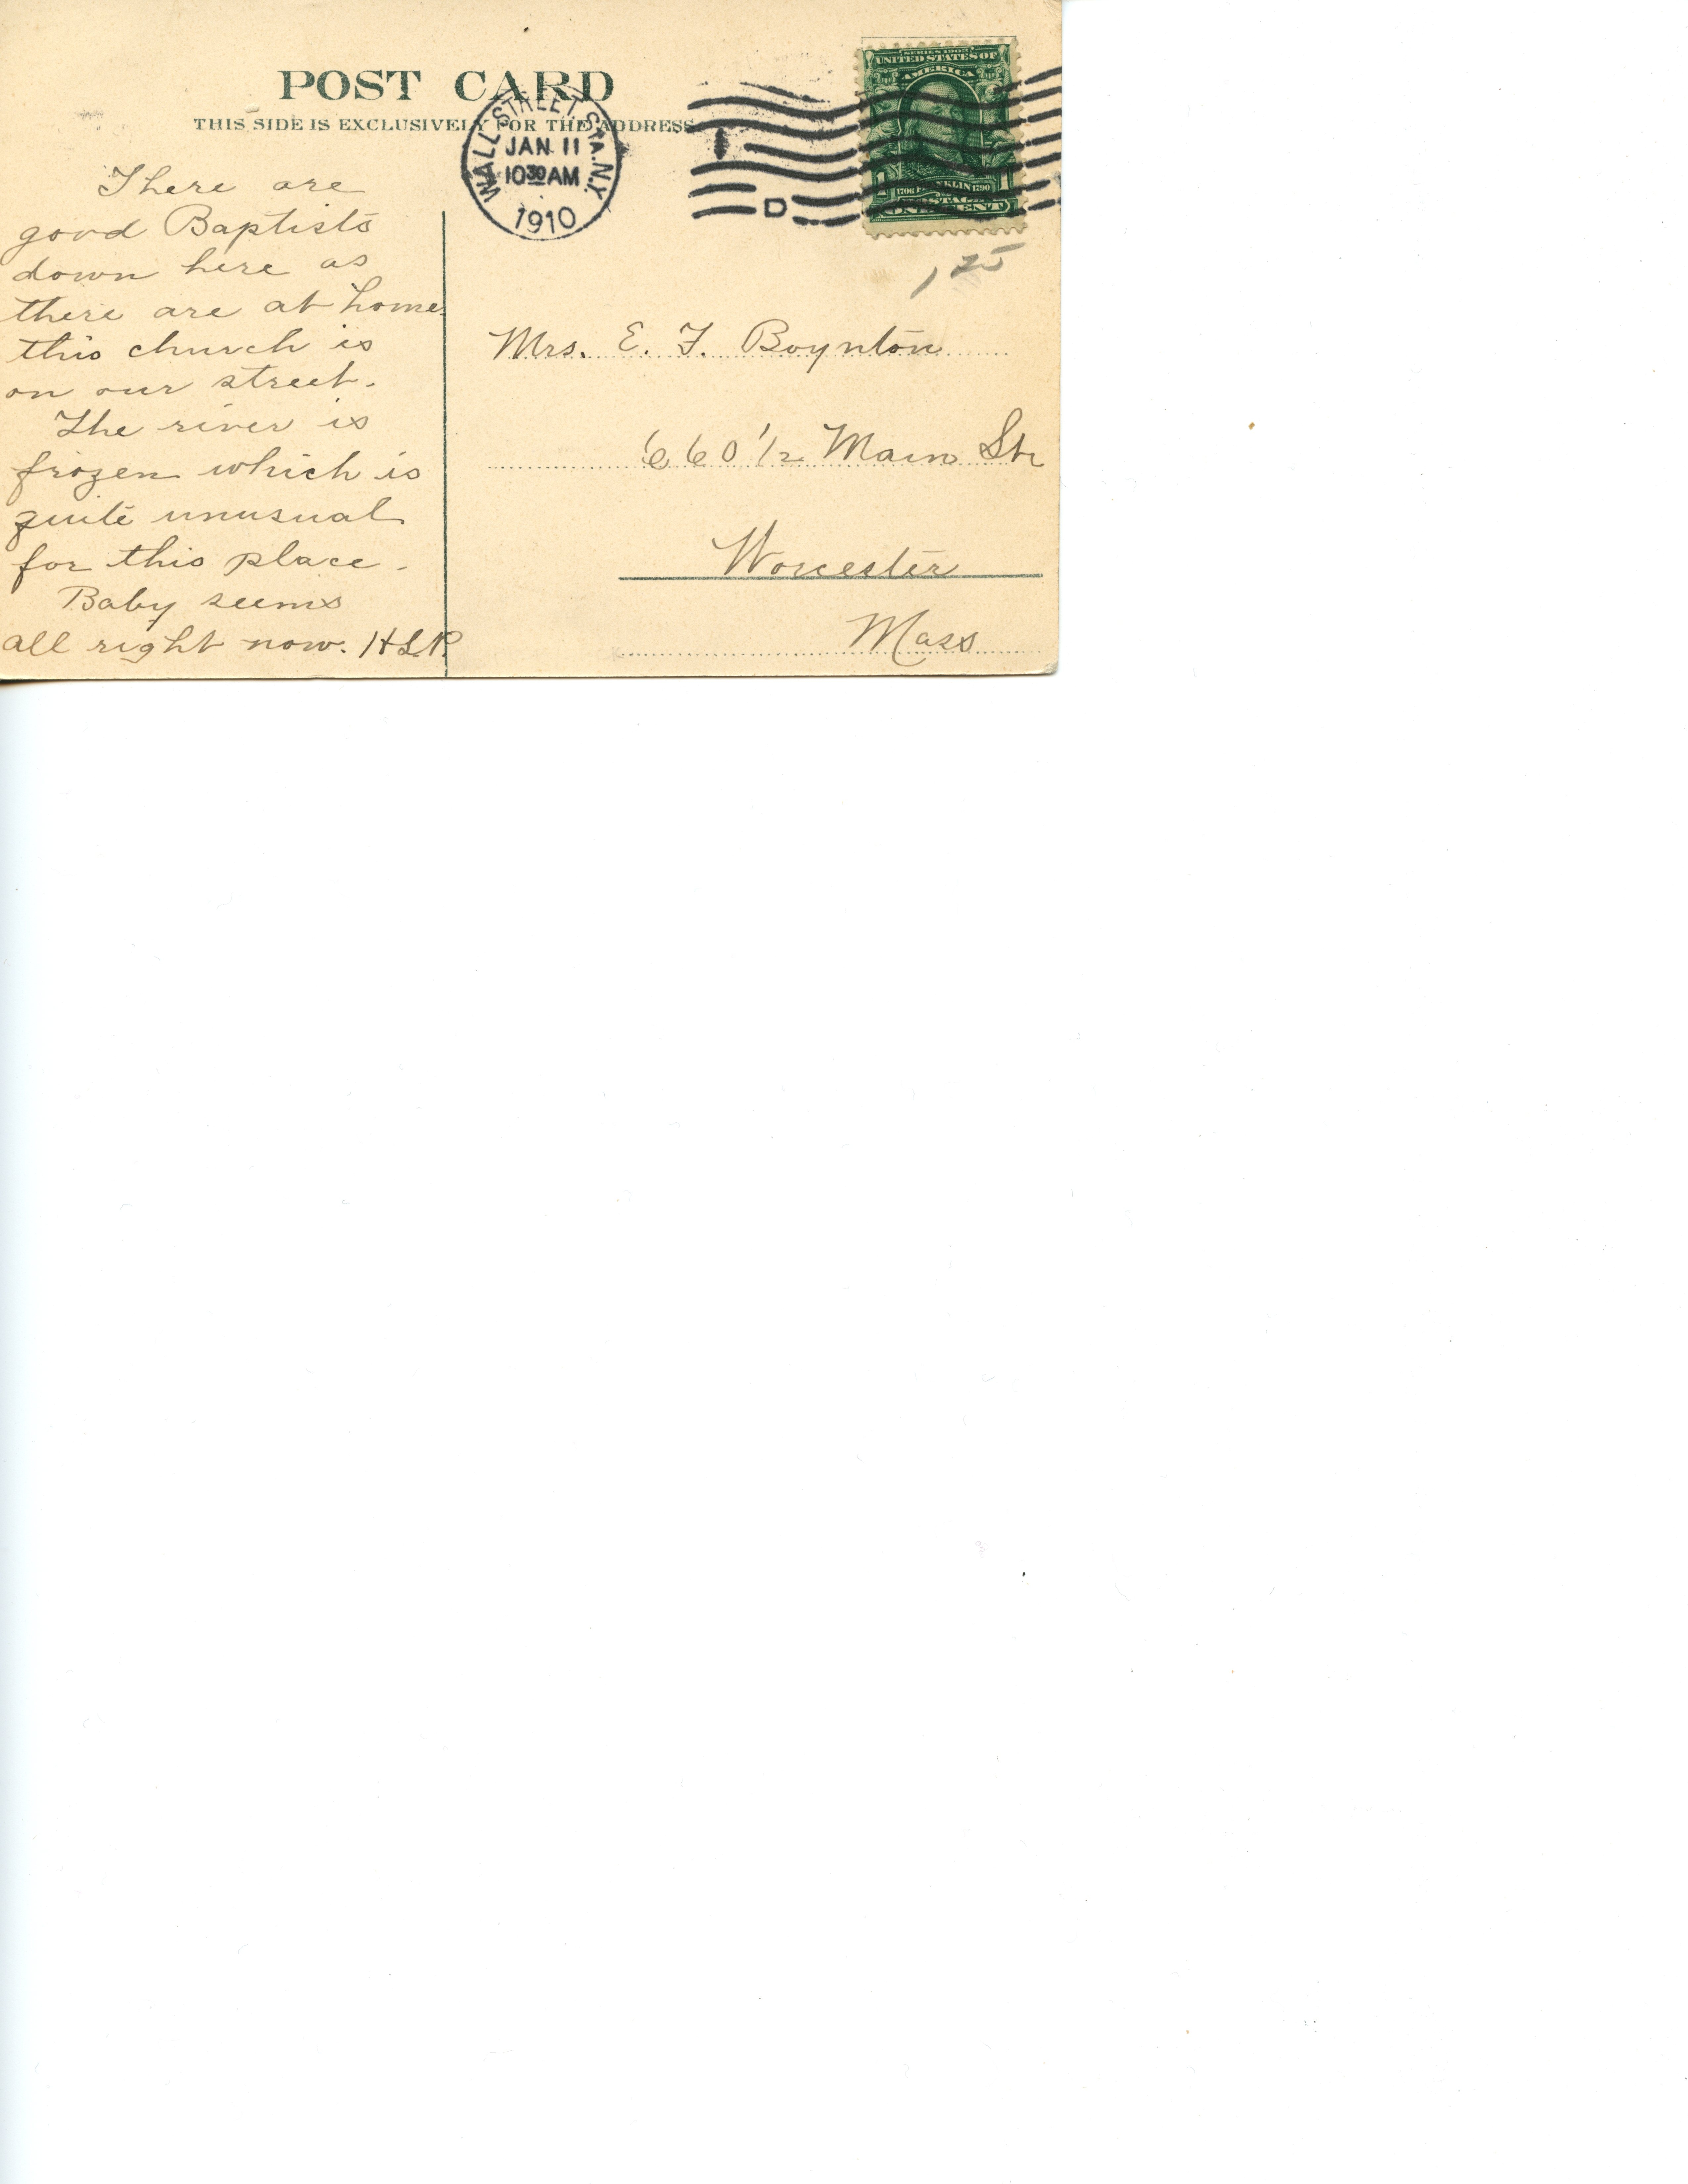 POST CARD
THIS SIDE IS EXCLUSIVELY FOR THE ADDRESS
WALL STREET STA. N.Y.
JAN 11
10 30 AM
1910
D
SERIES 1902
UNITED STATES OF
AMERICA
1706 FRANKLIN 1790
1 1
ONE CENT
There are
good Baptists
down here as
there are at home
this church is
on our street.
The river is
frozen which is
quite unusual
for this place.
Baby seems
all right now. HLP.
Mrs. E. F. Boynton
660 1/2 Main Str
Worcester
Mass